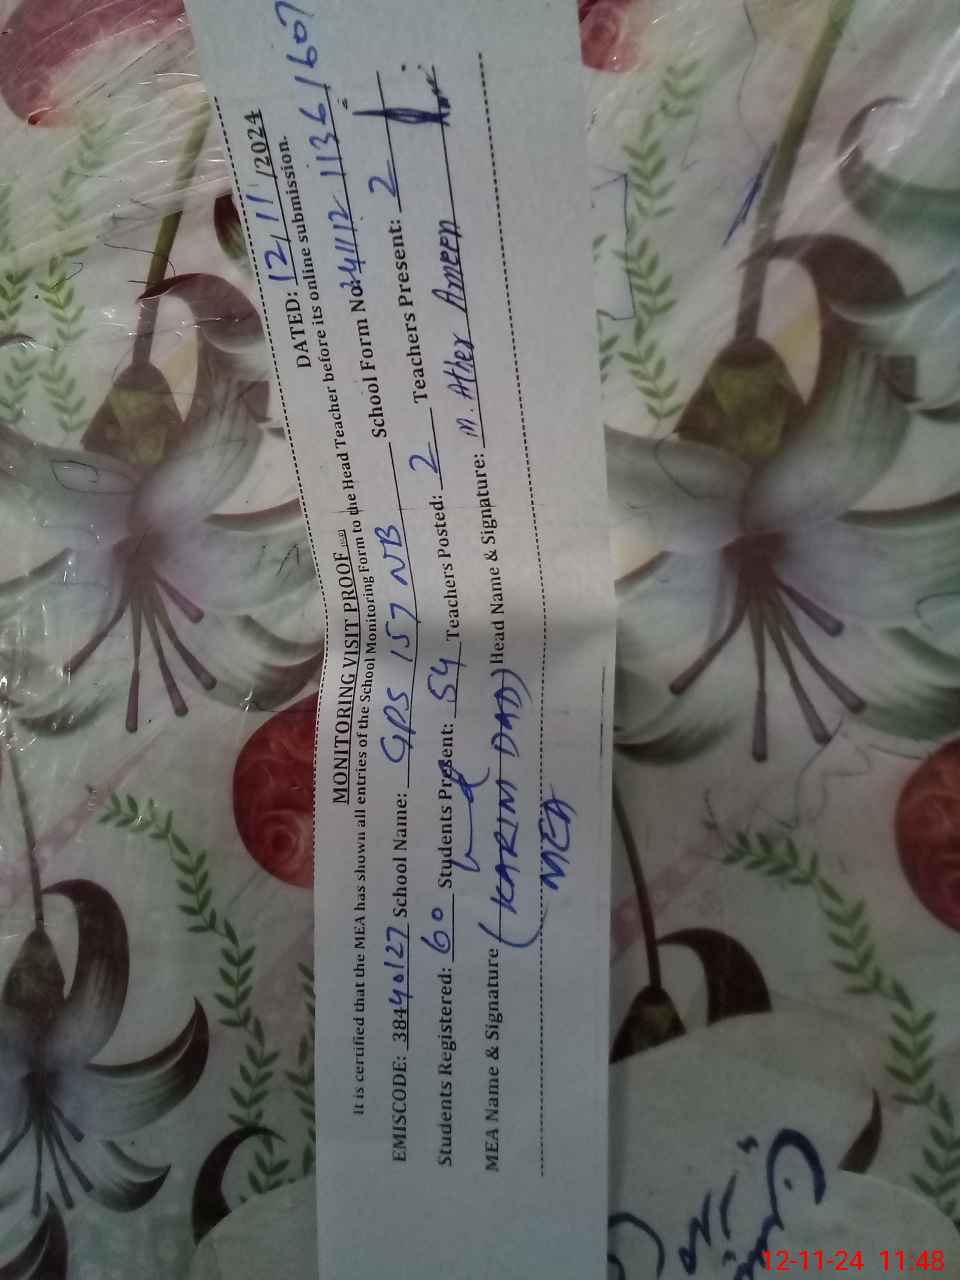 DATED: 12/11/2024
MONITORING VISIT PROOF
It is certified that the MEA has shown all entries of the School Monitoring Form to the Head Teacher before its online submission.
EMISCODE: 38440127 School Name: GPS 157 NB School Form No: 241112 1136 1607
Students Registered: 60 Students Present: 54 Teachers Posted: 2 Teachers Present: 2
MEA Name & Signature (KARIM DAD) Head Name & Signature: M. Ather Ameen
MEA
12-11-24 11:48